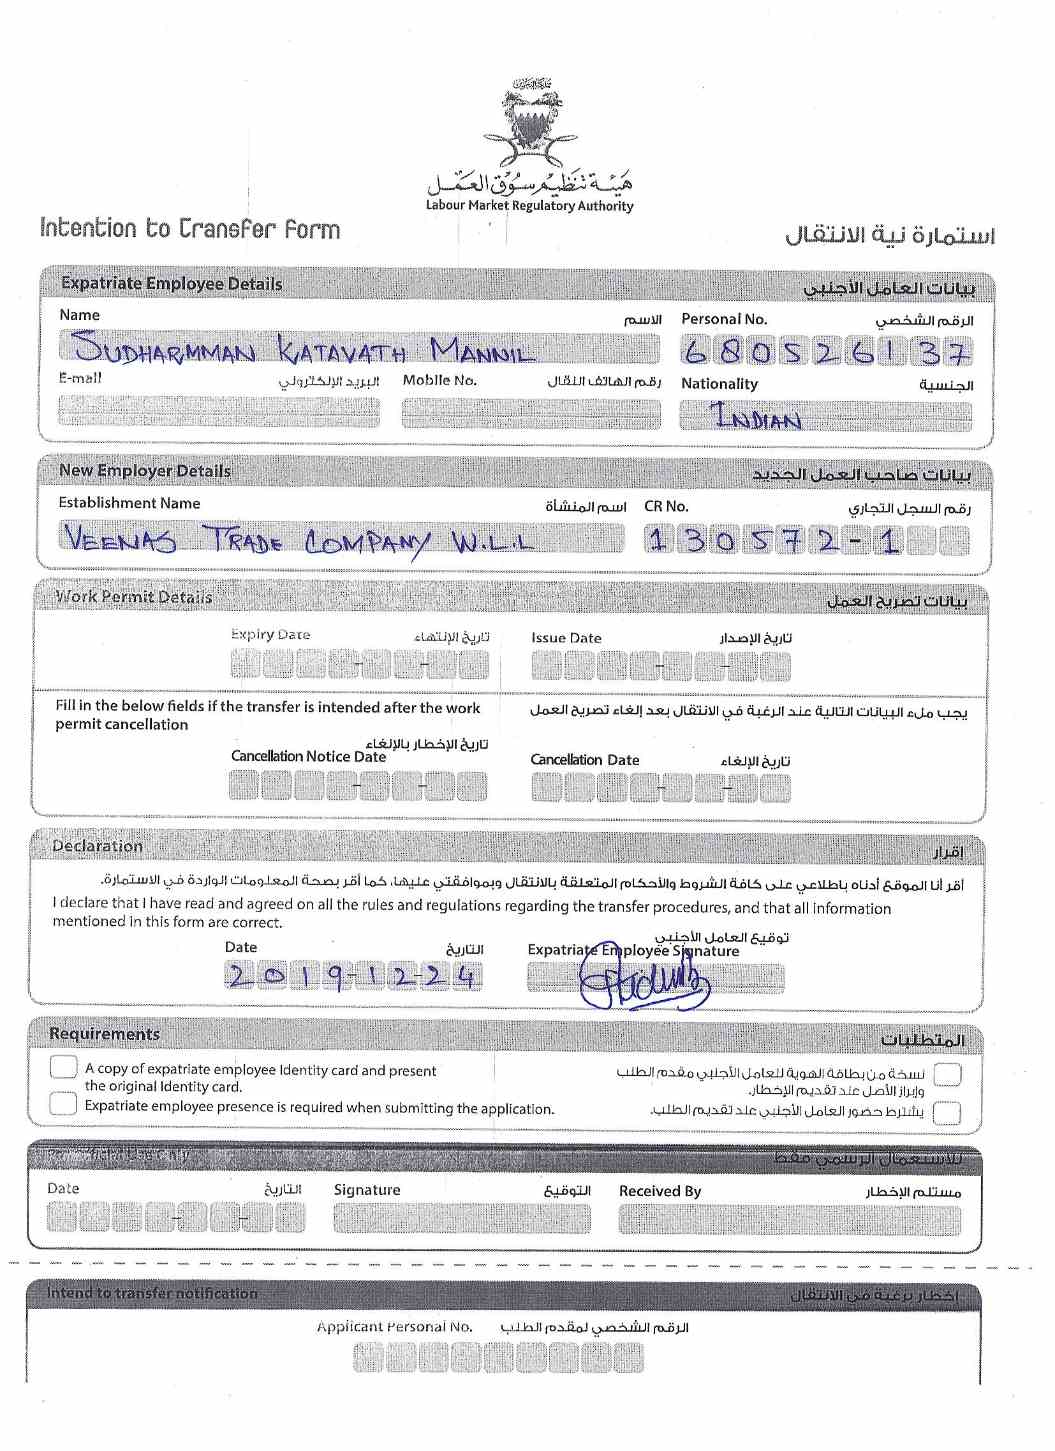 مملكة البحرين
هيئة تنظيم سوق العمل
Labour Market Regulatory Authority
Intention to Transfer Form استمارة نية الانتقال
Expatriate Employee Details بيانات العامل الأجنبي
Name الاسم Personal No. الرقم الشخصي
SUDHARMMAN KATAVATH MANNIL 680526137
E-mail البريد الإلكتروني Mobile No. رقم الهاتف النقال Nationality الجنسية
INDIAN
New Employer Details بيانات صاحب العمل الجديد
Establishment Name اسم المنشأة CR No. رقم السجل التجاري
VEENAS TRADE COMPANY W.L.L 130572-1
Work Permit Details بيانات تصريح العمل
Expiry Date تاريخ الإنتهاء Issue Date تاريخ الإصدار
Fill in the below fields if the transfer is intended after the work permit cancellation
يجب ملء البيانات التالية عند الرغبة في الانتقال بعد إلغاء تصريح العمل
Cancellation Notice Date تاريخ الإخطار بالإلغاء Cancellation Date تاريخ الإلغاء
Declaration اقرار
أقر أنا الموقع أدناه باطلاعي على كافة الشروط والأحكام المتعلقة بالانتقال وبموافقتي عليها، كما أقر بصحة المعلومات الواردة في الاستمارة.
I declare that I have read and agreed on all the rules and regulations regarding the transfer procedures, and that all information
mentioned in this form are correct.
توقيع العامل الأجنبي
Date التاريخ Expatriate Employee Signature
2019-12-24
Requirements المتطلبات
A copy of expatriate employee Identity card and present نسخة من بطاقة الهوية للعامل الأجنبي مقدم الطلب
the original Identity card. وإبراز الأصل عند تقديم الإخطار.
Expatriate employee presence is required when submitting the application. يشترط حضور العامل الأجنبي عند تقديم الطلب.
For Official Use Only للاستعمال الرسمي فقط
Date التاريخ Signature التوقيع Received By مستلم الإخطار
Intend to transfer notification إخطار برغبة في الانتقال
Applicant Personal No. الرقم الشخصي لمقدم الطلب